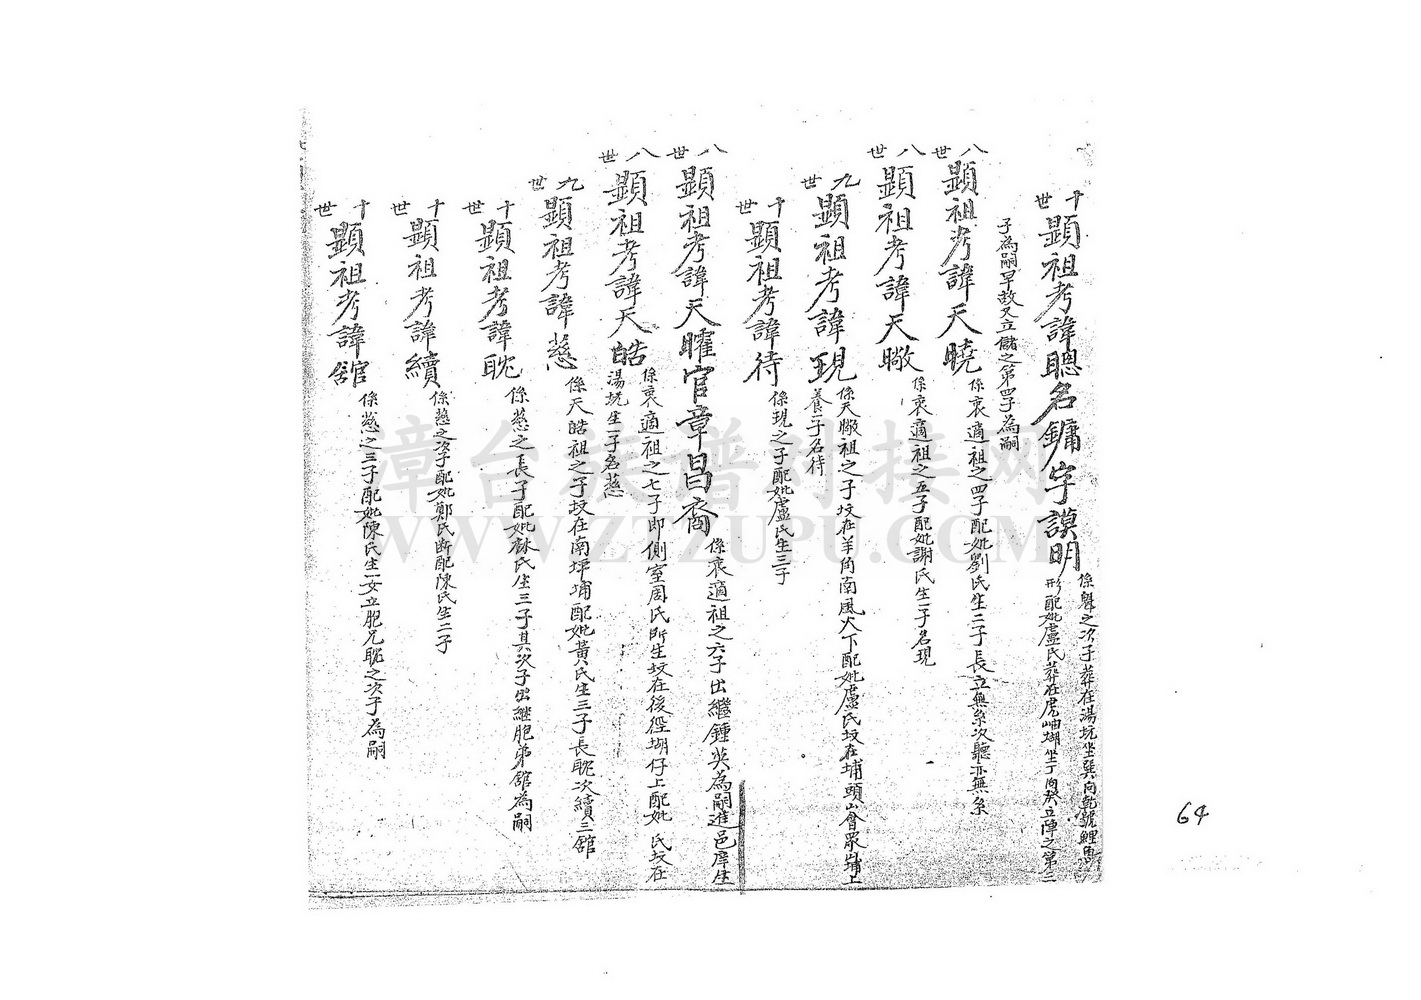 十世
顯祖考諱聰名鏞字謨明
係舉之次子葬在湯坑坐巽向乾號鯉魚
形配妣盧氏葬在虎岫堋坐丁向癸立陣之第三
子為嗣早故又立儲之第四子為嗣
八世
顯祖考諱天曉
係衷適祖之四子配妣劉氏生二子長立無系次聽亦無系
八世
顯祖考諱天暾
係衷適祖之五子配妣謝氏生一子名現
九世
顯祖考諱現
係天暾祖之子坟在羊角南風火下配妣盧氏坟在埔頭山會眾埔上
養一子名待
十世
顯祖考諱待
係現之子配妣盧氏生三子
八世
顯祖考諱天曜官章昌裔
係衷適祖之六子出繼鍾英為嗣進邑庠生
八世
顯祖考諱天皓
係衷適祖之七子即側室周氏所生坟在後徑堋仔上配妣 氏坟在
湯坑生一子名慈
九世
顯祖考諱慈
係天皓祖之子坟在南坪埔配妣黃氏生三子長耽次續三舘
十世
顯祖考諱耽
係慈之長子配妣林氏生三子其次子出繼胞弟舘為嗣
十世
顯祖考諱續
係慈之次子配妣鄭氏断配陳氏生二子
十世
顯祖考諱舘
係慈之三子配妣陳氏生一女立胞兄耽之次子為嗣
漳台族谱对接网
WWW.ZTZUPU.COM
64